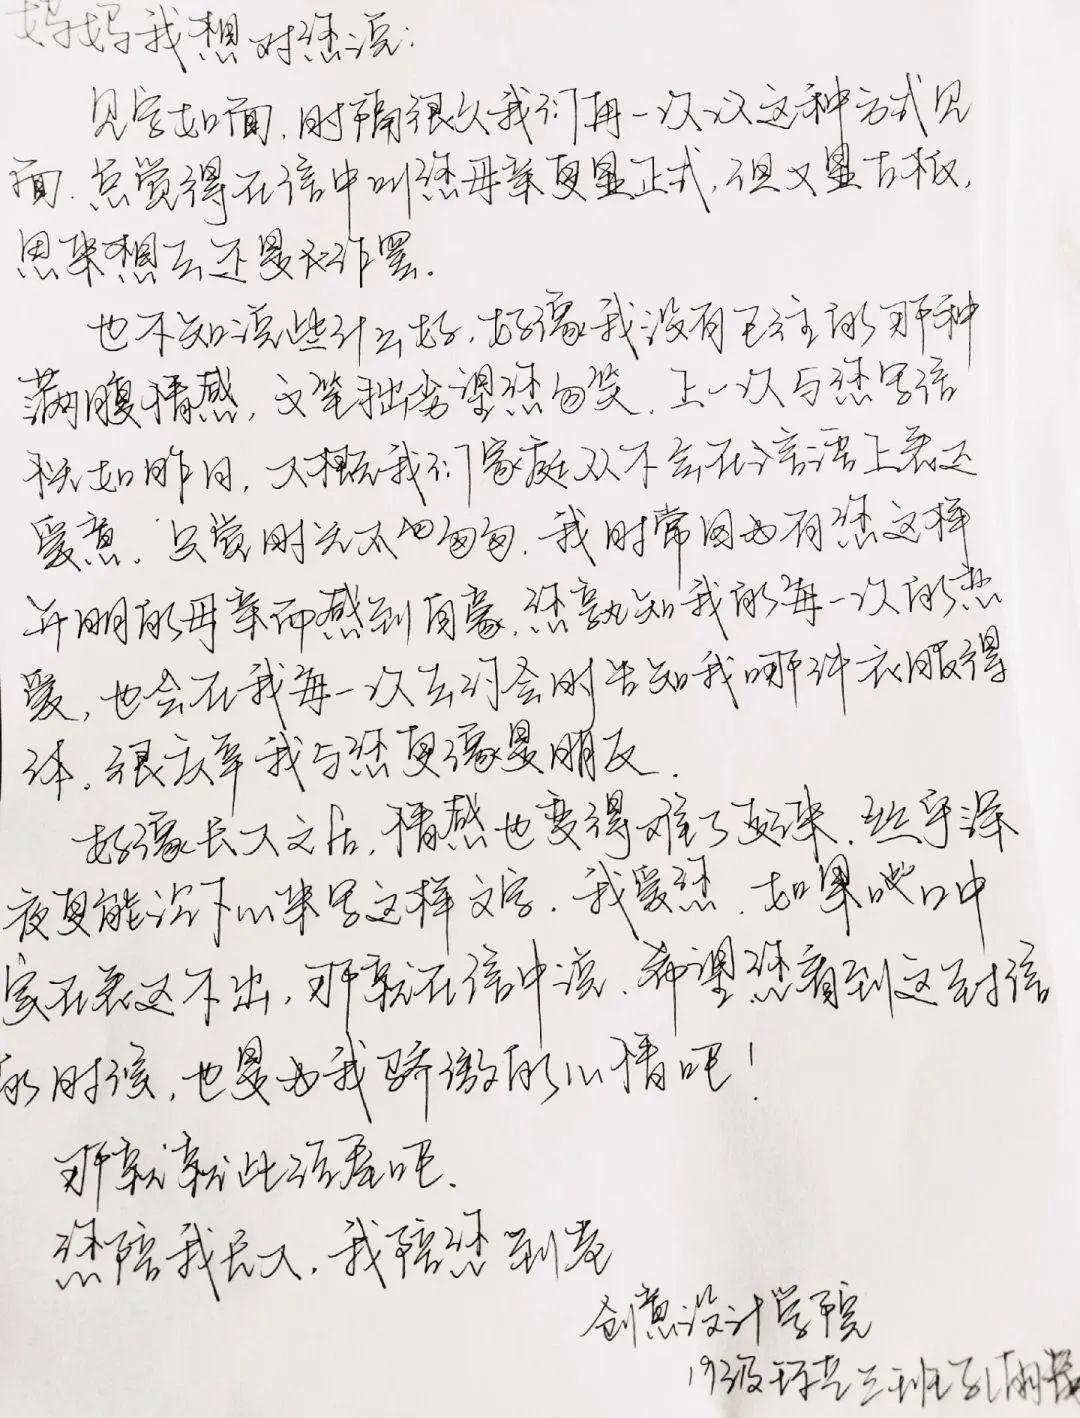 妈妈我想对您说:
见字如面,时隔很久我们再一次以这种方式见
面.总觉得在信中叫您母亲更显正式,但又显古板,
思来想去还是不作罢.
也不知说些什么好,好像我没有已往的那种
满腹情感,文笔拙劣望您勿笑.上一次与您写信
犹如昨日,大概我们家庭从不会在言语上表达
爱意.只觉时光太匆匆.我时常因为有您这样
开明的母亲而感到自豪.您熟知我的每一次的热
爱,也会在我每一次去约会时告知我哪件衣服得
体.很庆幸我与您更像是朋友.
好像长大之后,情感也变得难了起来.似乎深
夜更能沉下心来写这样文字.我爱您.如果口中
实在表达不出,那就在信中说.希望您看到这封信
的时候,也是为我骄傲的心情吧!
那就就此话尾吧.
您陪我长大,我陪您到老
创意设计学院
19级环艺三班